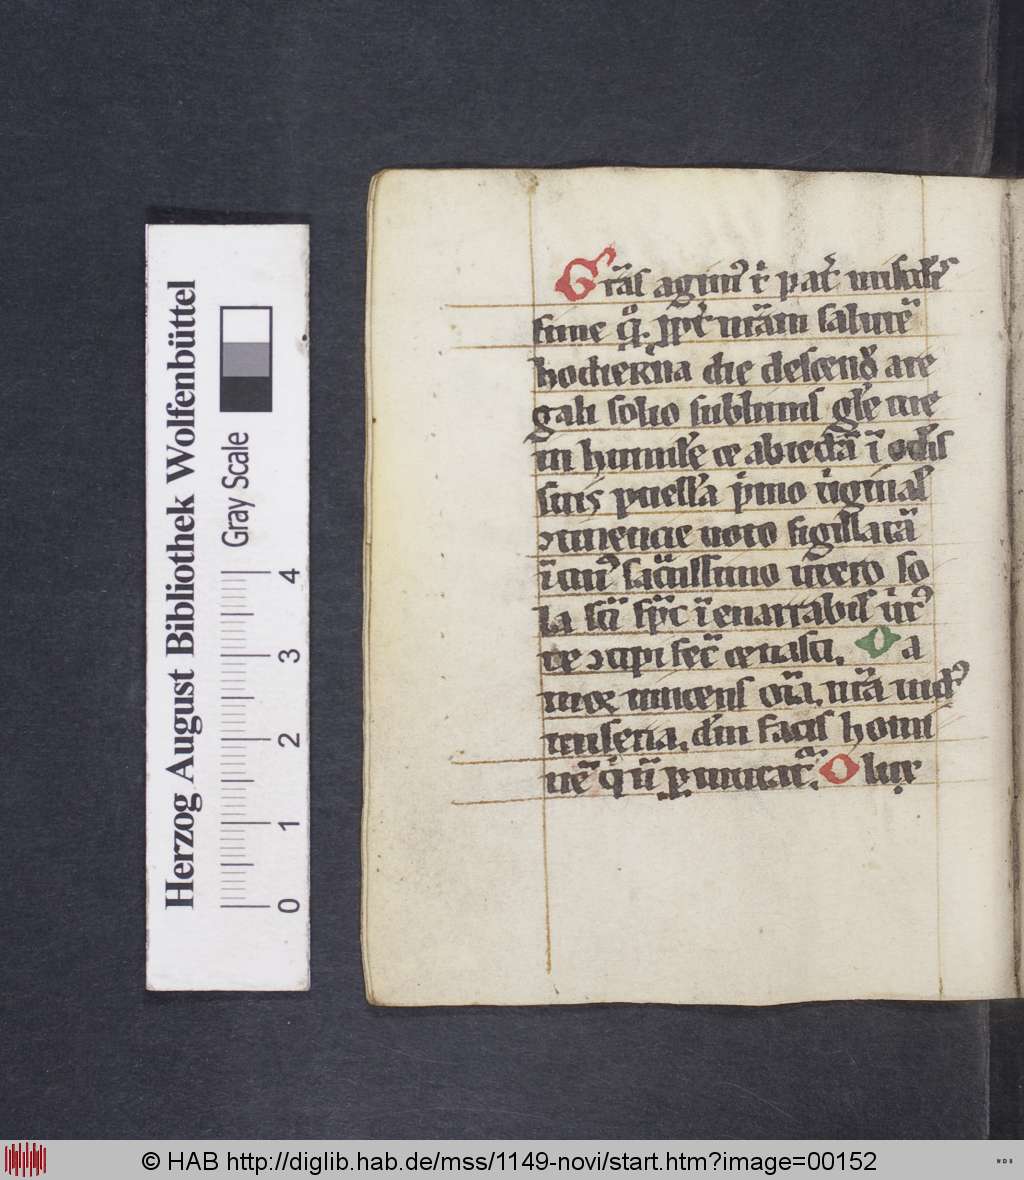 Herzog August Bibliothek Wolfenbüttel
Gray Scale
0 1 2 3 4
Gr̄as agim᷒ t̄ pat̄ misc̄dīs
sime q̊. ꝓpt̄ nr̄am salutē
hodierna die descend̄ a re
gali solio sublimis gl̄e tue
in humile ⁊
suis puella p̄mo v̄ginal̄
ꝯtinencie uoto sigillatā
ī cui᷒ sac̄tissimo utero so
la sc̄i sp̄c īenarrabil̄ v̄t᷒
te ꝯcipi fec̄ ⁊ nasci. O a
mor uincens om̄a.
miseria. dm̄ facis homi
nē O lux
© HAB http://diglib.hab.de/mss/1149-novi/start.htm?image=00152